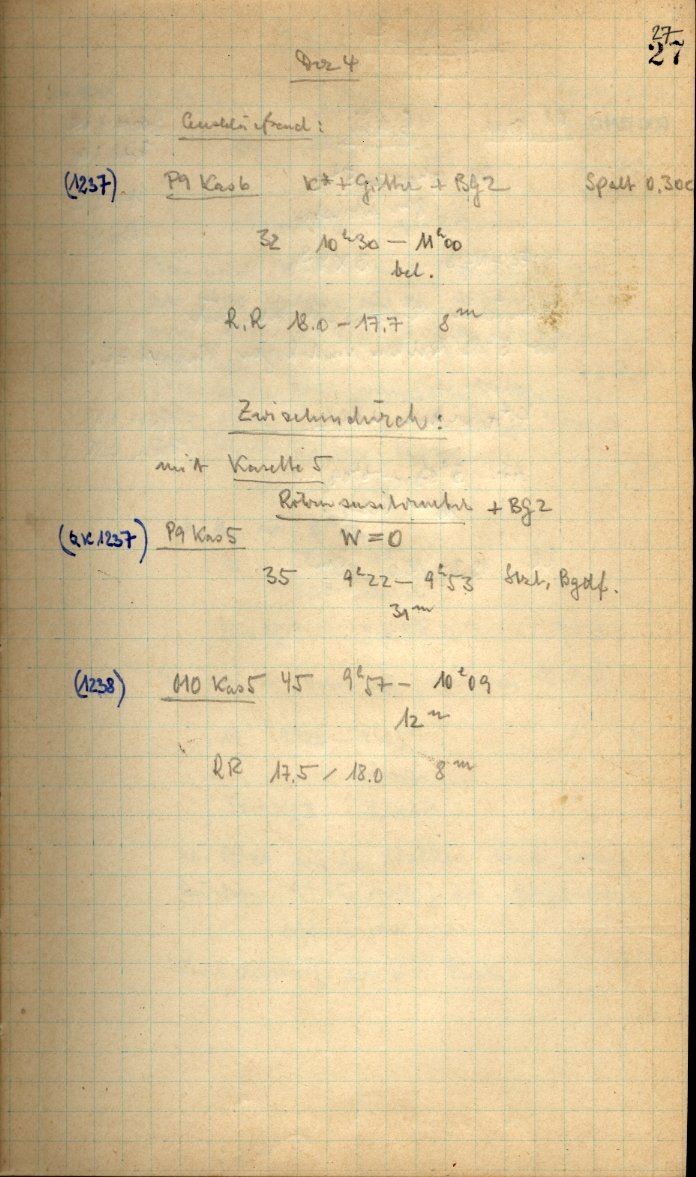 27
27
Dez 4
Anschließend:
(1237) P9 Kas6 K* + Gitter + BG2 Spalt 0,30
32 10h30 — 11h00
bel.
R.R 18.0 – 17.7 8m
Zwischendurch:
mit Kasette 5
+ BG2
(QK 1237) P9 Kas5 W = 0
35 9h22 — 9h53
31m
(1238) Kas5 45 9h57 — 10h09
12m
RR 17.5 / 18.0 8m